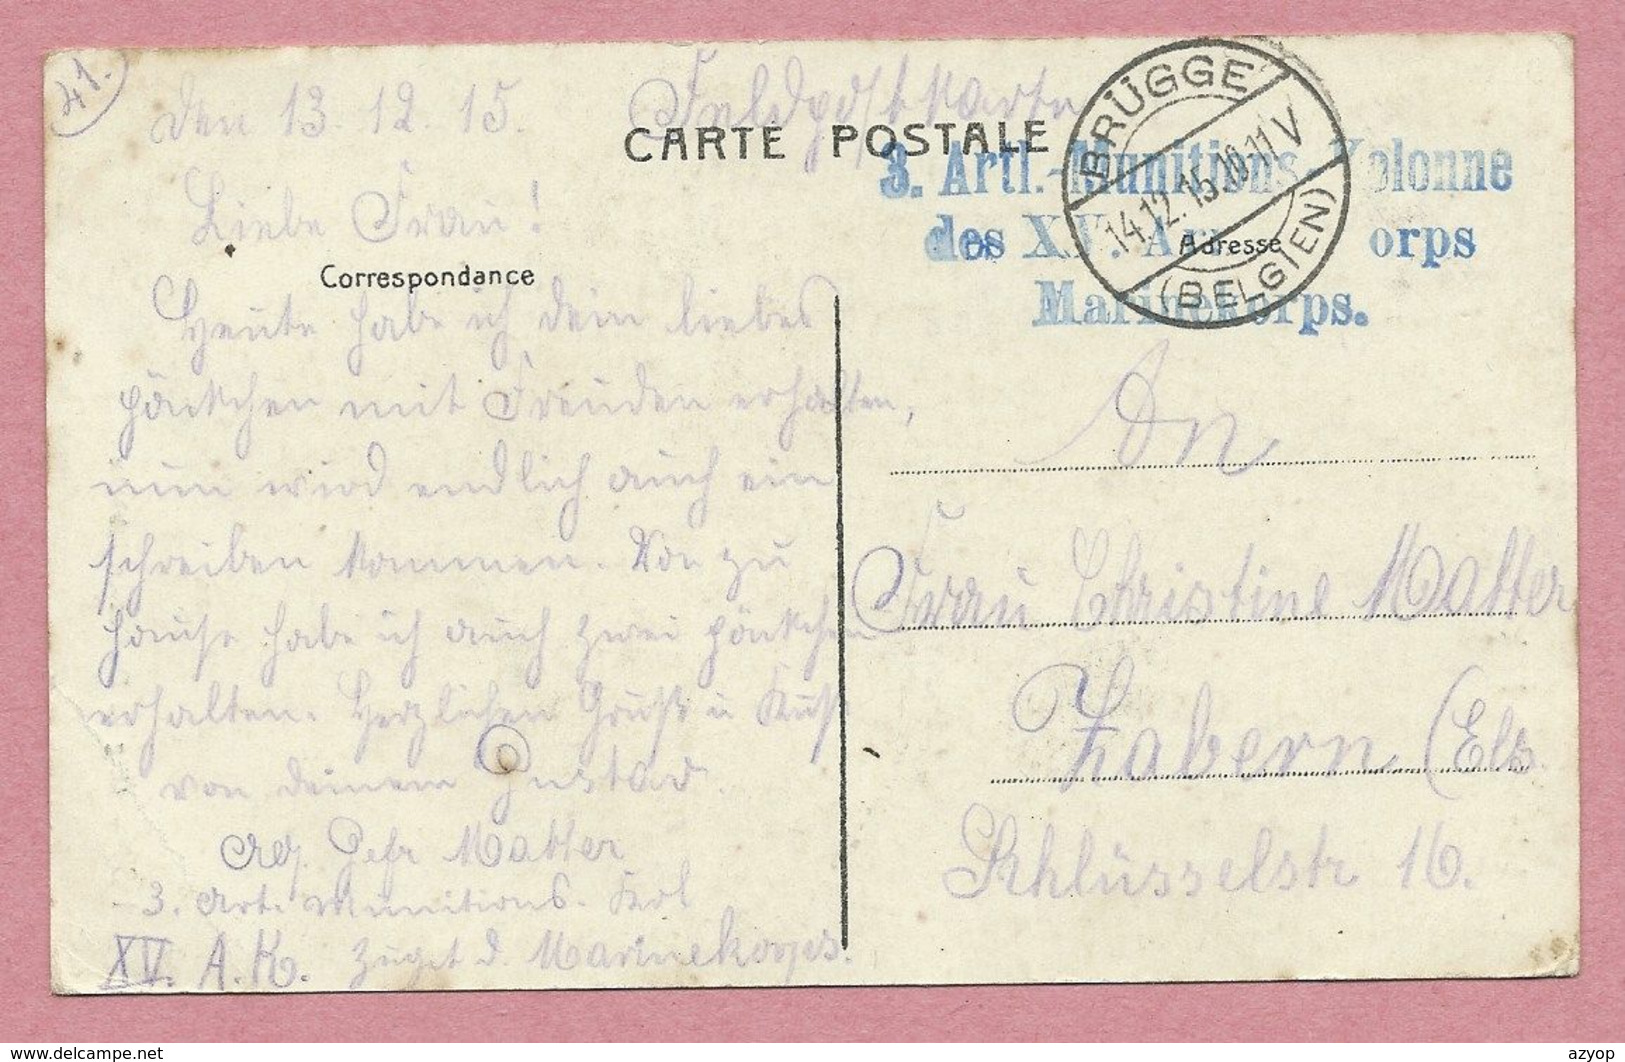 41.
den 13. 12. 15.
Feldpostkarte
CARTE POSTALE
BRÜGGE
14.12.15.10-11V
(BELGIEN)
3. Artl.-Munitions-Kolonne
des XV. Armeekorps
Marinekorps.
Liebe Frau!
Correspondance
Adresse
Heute habe ich dein liebes
päckchen mit Freuden erhalten,
nun wird endlich auch ein
schreiben kommen. Von zu
hause habe ich auch zwei päckchen
erhalten. Herzlichen Gruß u Kuß
von deinem Gustav.
Gefr Matter
3. Art. Munitions. Kol
XV. A.K. zuget d. Marinekorps.
An
Frau Christine Matter
Zabern (Els.
Schlüsselstr 16.
azyop